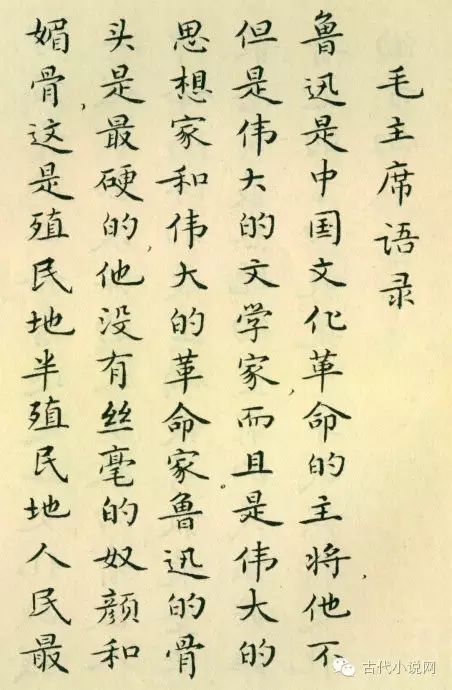 毛主席语录
鲁迅是中国文化革命的主将，他不
但是伟大的文学家，而且是伟大的
思想家和伟大的革命家。鲁迅的骨
头是最硬的，他没有丝毫的奴颜和
媚骨，这是殖民地半殖民地人民最
古代小说网